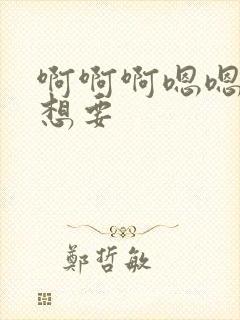 啊啊啊嗯嗯
想要
鄭哲敏